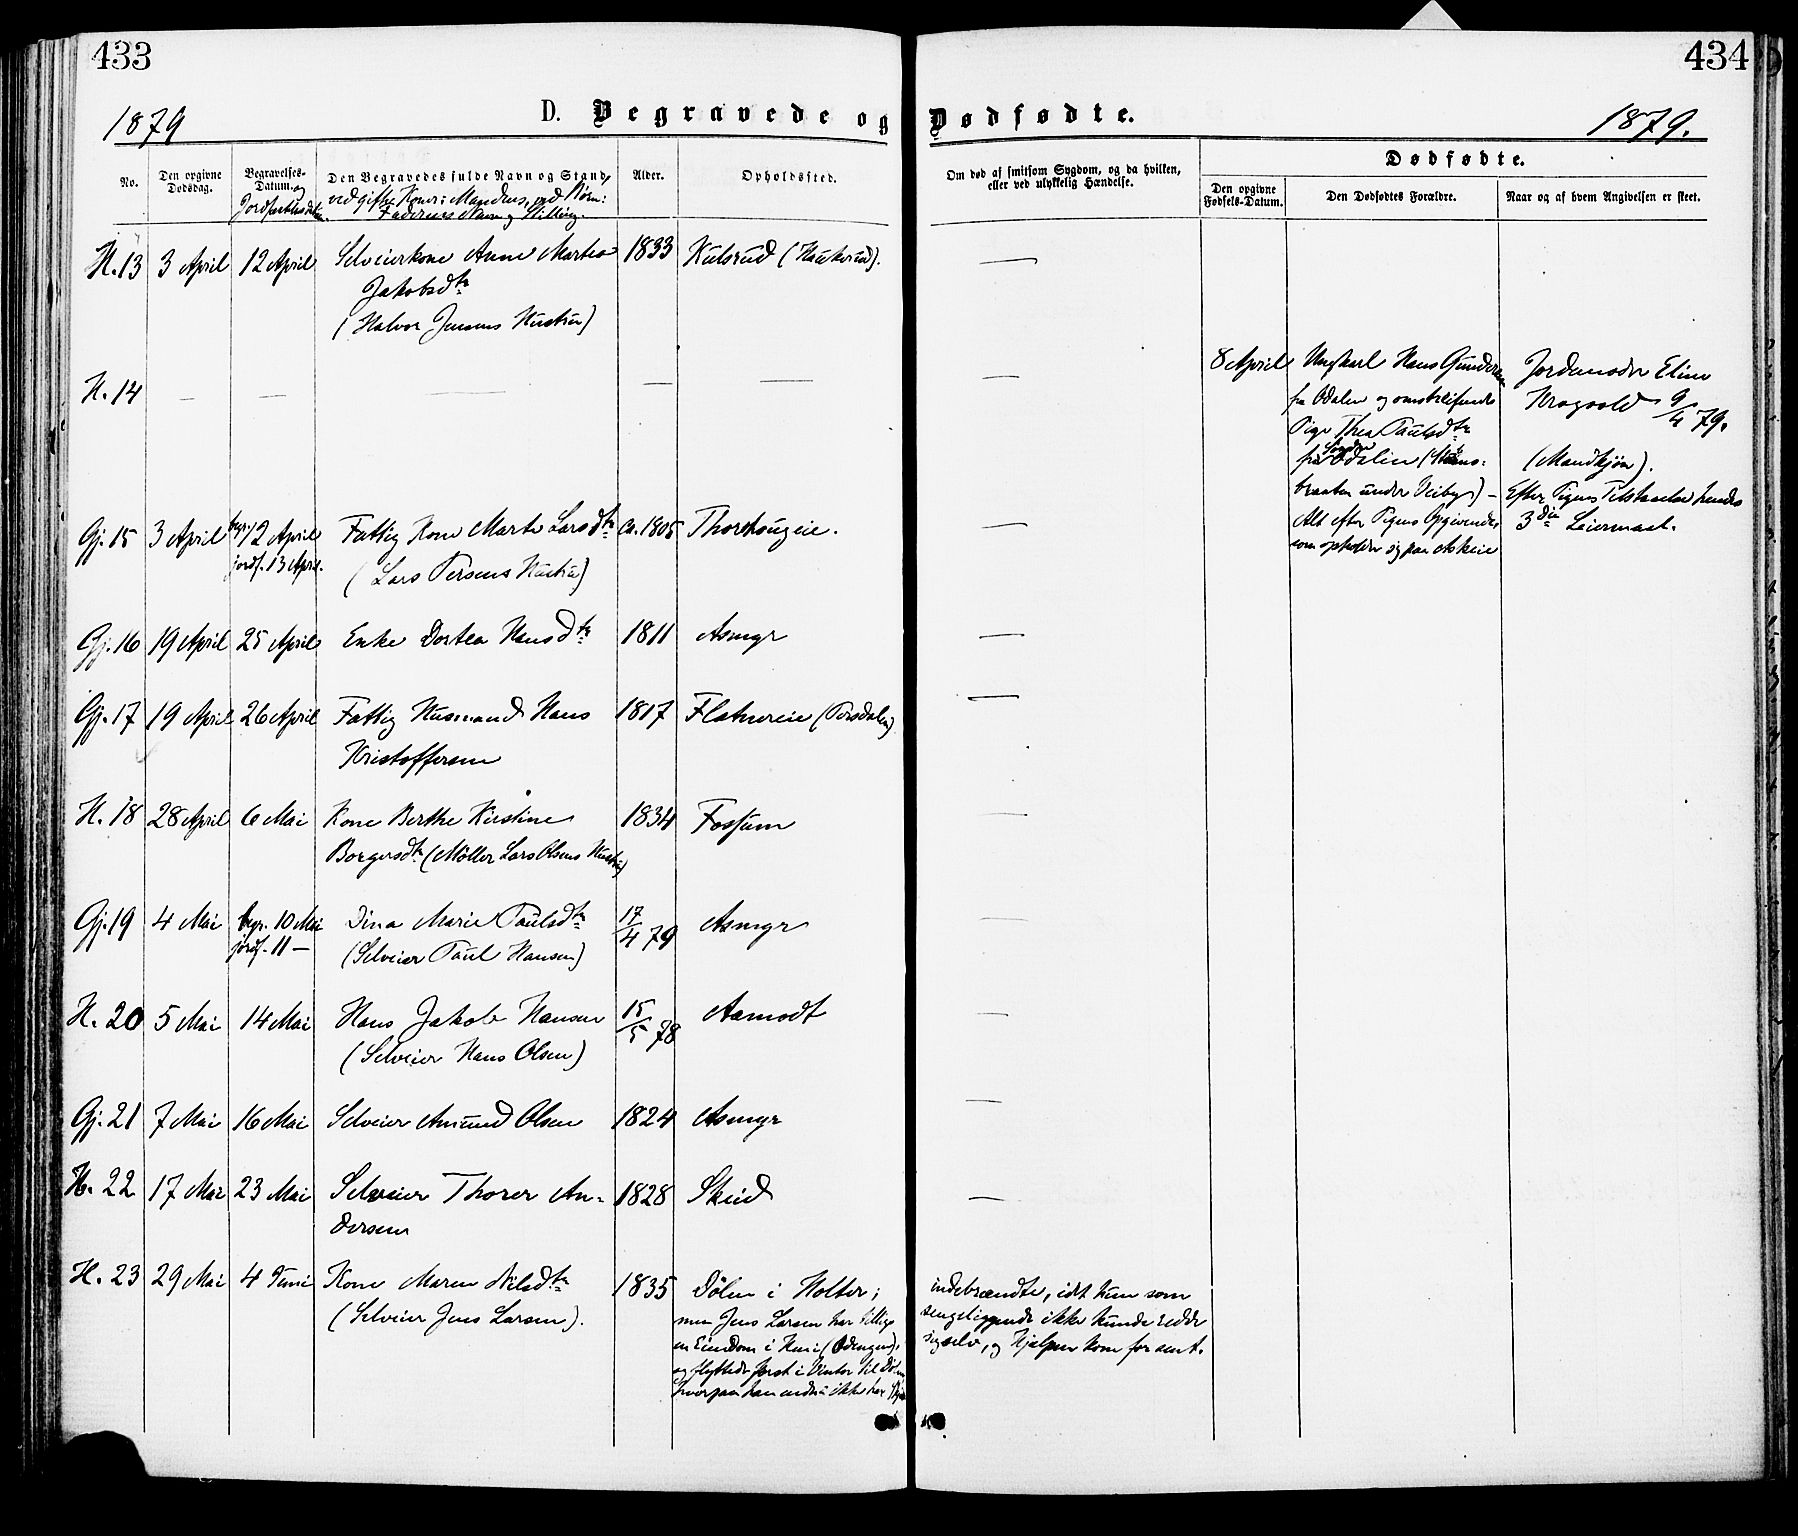 433
434
1879
D. Begravede og Dødfødte.
1879.
No.
Den opgivne Dødsdag.
Begravelses-Datum. og Jordfæstelsesdatum.
Den Begravedes fulde Navn og Stand,
ved gifte Koner: Mandens, ved Børn:
Faderens Navn og Stilling.
Alder.
Opholdssted.
Om død af smitsom Sygdom, og da hvilken,
eller ved ulykkelig Hændelse.
Dødfødte.
Den opgivne Fødsels-Datum.
Den Dødfødtes Forældre.
Naar og af hvem Angivelsen er skeet.
H. 13 3 April 12 April Selveierkone Anne Martea 1833 Kulsrud (Haukerud). —
Jakobsdtr
(Halvor Jensens Hustru)
H. 14 — — — — — —
8 April
Ungkarl Hans Gundersen
fra Odalen og omstreifende
Pige Thea Paulsdtr
fra Søndre Odalen (
braaten under Veiby) –
Alt efter Pigens Opgivende,
som opholder sig paa Askeie
Jordemoder Eline
Krogvold 9/4 79.
(Mandkjøn).
Efter Pigens Tilstaaelse hendes
3die Leiermaal.
Gj. 15 3 April begr. 12 April Fattig Kone Marte Larsdtr ca. 1805 Thorshougeie. —
jordf. 13 April.
(Lars Persens Hustru)
Gj. 16 19 April 25 April Enke Dortea Hansdtr 1811 Asmyr —
Gj. 17 19 April 26 April Fattig Husmand Hans 1817 Flatnereie (Persdalen) —
Kristoffersen
H. 18 28 April 6 Mai Kone Berthe Kirstine 1834 Fossum —
Borgersdtr (Møller Lars Olsens Hustru)
Gj. 19 4 Mai begr. 10 Mai Dina Marie Paulsdtr 17/4 79 Asmyr —
jordf. 11 —
(Selveier Paul Hansen)
H. 20 5 Mai 14 Mai Hans Jakob Hansen 15/5 78 Aamodt —
(Selveier Hans Olsen)
Gj. 21 7 Mai 16 Mai Selveier Amund Olsen 1824 Asmyr —
H. 22 17 Mai 23 Mai Selveier Thorer An- 1828 Skud —
dersen
H. 23 29 Mai 4 Juni Kone Maren Nilsdtr 1835 Dølen i Holter;
(Selveier Jens Larsen).
men Jens Larsen har tillige
en Eiendom i Huni (Ødengen),
og flyttede først i Vinter til Dølen
hvorpaa han endnu ikke har
indebrændte, idet hun som
sengeliggende ikke kunde redde
sig selv, og Hjelpen kom for sent.